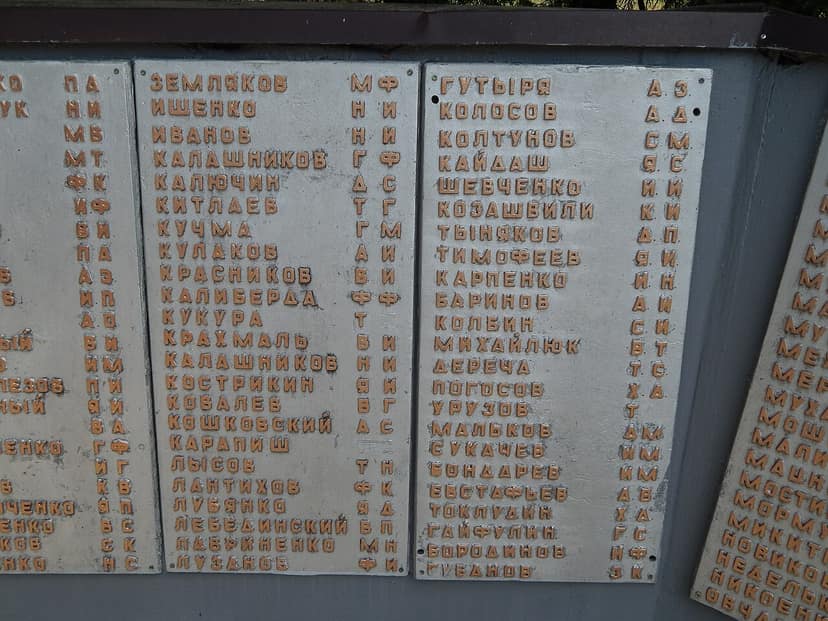 КО ПА
УК НИ
МВ
МТ
ФК
ИФ
ВИ
ПА
АЗ
ИП
АО
ВИ
ИМ
ЛЕЗОВ ПИ
НЫЙ ЯИ
ВА
ЕНКО ГФ
ИГ
КВ
ЧЕНКО ЯП
ЕНКО ВС
КОВ СК
ЕНКО НС
ЗЕМЛЯКОВ М Ф
ИЩЕНКО Н И
ИВАНОВ Н И
КАЛАШНИКОВ Г Ф
КАЛЮЧИН Д С
КИТЛАЕВ Т Г
КУЧМА Г М
КУЛАКОВ А И
КРАСНИКОВ В И
КАЛИБЕРДА Ф Ф
КУКУРА Т
КРАХМАЛЬ В И
КАЛАШНИКОВ Н И
КОСТРИКИН Я И
КОВАЛЕВ В Г
КОШКОВСКИЙ А С
КАРАПИШ
ЛЫСОВ Т Н
ЛАНТИХОВ Ф К
ЛУБЯНКО Я Д
ЛЕБЕДИНСКИЙ В П
ЛАВРИНЕНКО М Н
ЛУЗАНОВ Ф И
ГУТЫРЯ А. З.
КОЛОСОВ А. Д.
КОЛТУНОВ С М.
КАЙДАШ Я. С.
ШЕВЧЕНКО И. И
КОЗАШВИЛИ К. И
ТЫНЯКОВ Д. П
ТИМОФЕЕВ Я. И
КАРПЕНКО И. Н
БАРИНОВ А. И
КОЛБИН С. И
МИХАЙЛЮК В. Т
ДЕРЕЧА Т. С.
ПОГОСОВ Х. А
УРУЗОВ Т.
МАЛЬКОВ Д М
СУКАЧЕВ И М
БОНДАРЕВ И М
ЕВСТАФЬЕВ А. В
ТОКЛУДИН Х. Д
ГАЙФУЛИН Г С
БОРОДИНОВ И Ф
ГУБАНОВ З К
МЕН
МЕР
МУХА
МОШ
МАЛИ
МАШН
МОСТИ
МОРМУ
МИКИТ
НОВИКОВ
НЕДЕЛЬК
НИКОЕН
ОВЧА